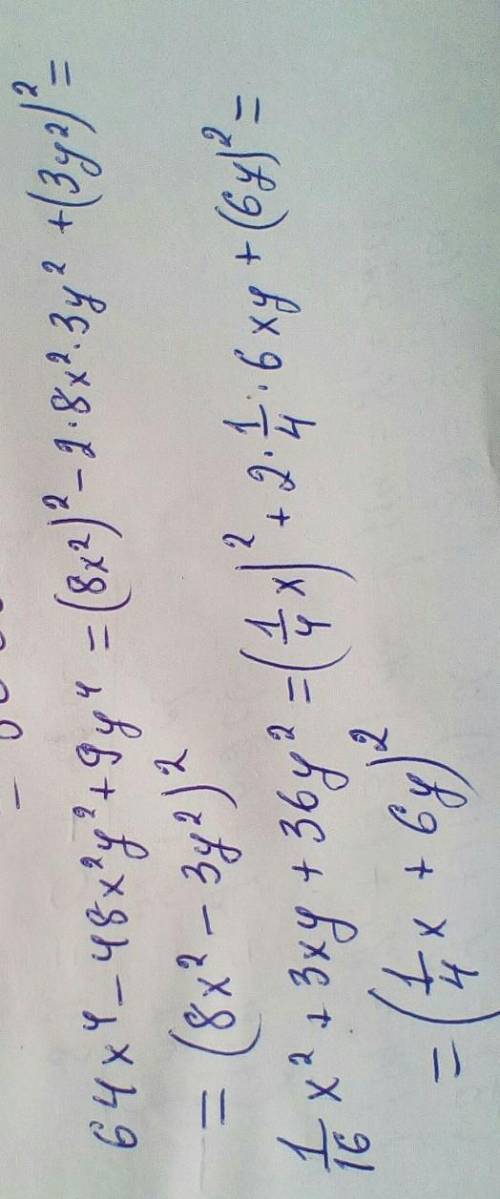 64x⁴ - 48x²y² + 9y⁴ = (8x²)² - 2·8x²·3y² + (3y²)² =
= (8x² - 3y²)²
1/16 x² + 3xy + 36y² = (1/4 x)² + 2·1/4·6xy + (6y)² =
= (1/4 x + 6y)²